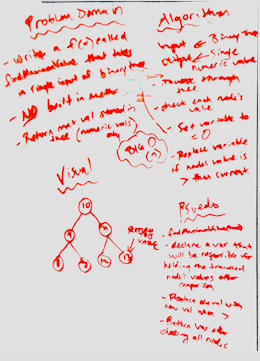 Problem Domain
- Write a f(x) called
findMaximumValue that takes
a single input of binary tree
- NO built in methods
- Return max val stored in
tree (numeric vals
only)
Big O
Visual
10
Return
value
Algorithm
Input ← Binary Tree
Output ← Single
numeric value
- Traverse through
tree
- check each node's
value
- Set variable to
= 0
- Replace variable
if node's value is
> then current.
Psuedo
- findMaximumValue
- declare a var that
will be responsible for
holding the traversed
node's values after
comparison.
- Replace old val when
new val when >
- Return var after
checking all nodes